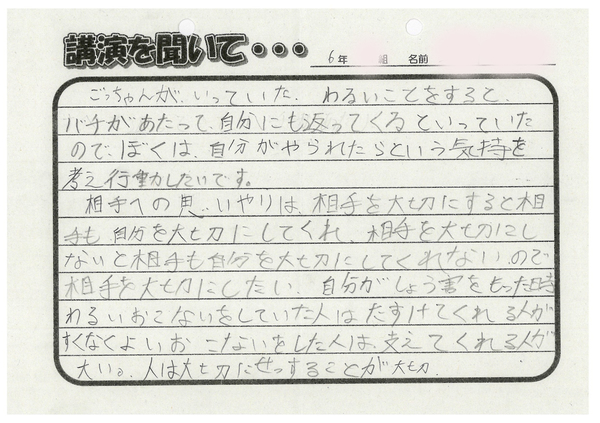 講演を聞いて・・・
6年 組 名前
ごっちゃんが、いっていた、わるいことをすると、
バチがあたって、自分にも返ってくるといっていた
ので、ぼくは、自分がやられたらという気持を
考え行動したいです。
相手への思いやりは、相手を大切にすると相
手も自分を大切にしてくれ、相手を大切にし
ないと相手も自分を大切にしてくれないので
相手を大切にしたい。自分がしょう害をもった時
わるいおこないをしていた人はたすけてくれる人が
すくなくよいおこないをした人は、支えてくれる人が
大い。人は大切にせっすることが大切